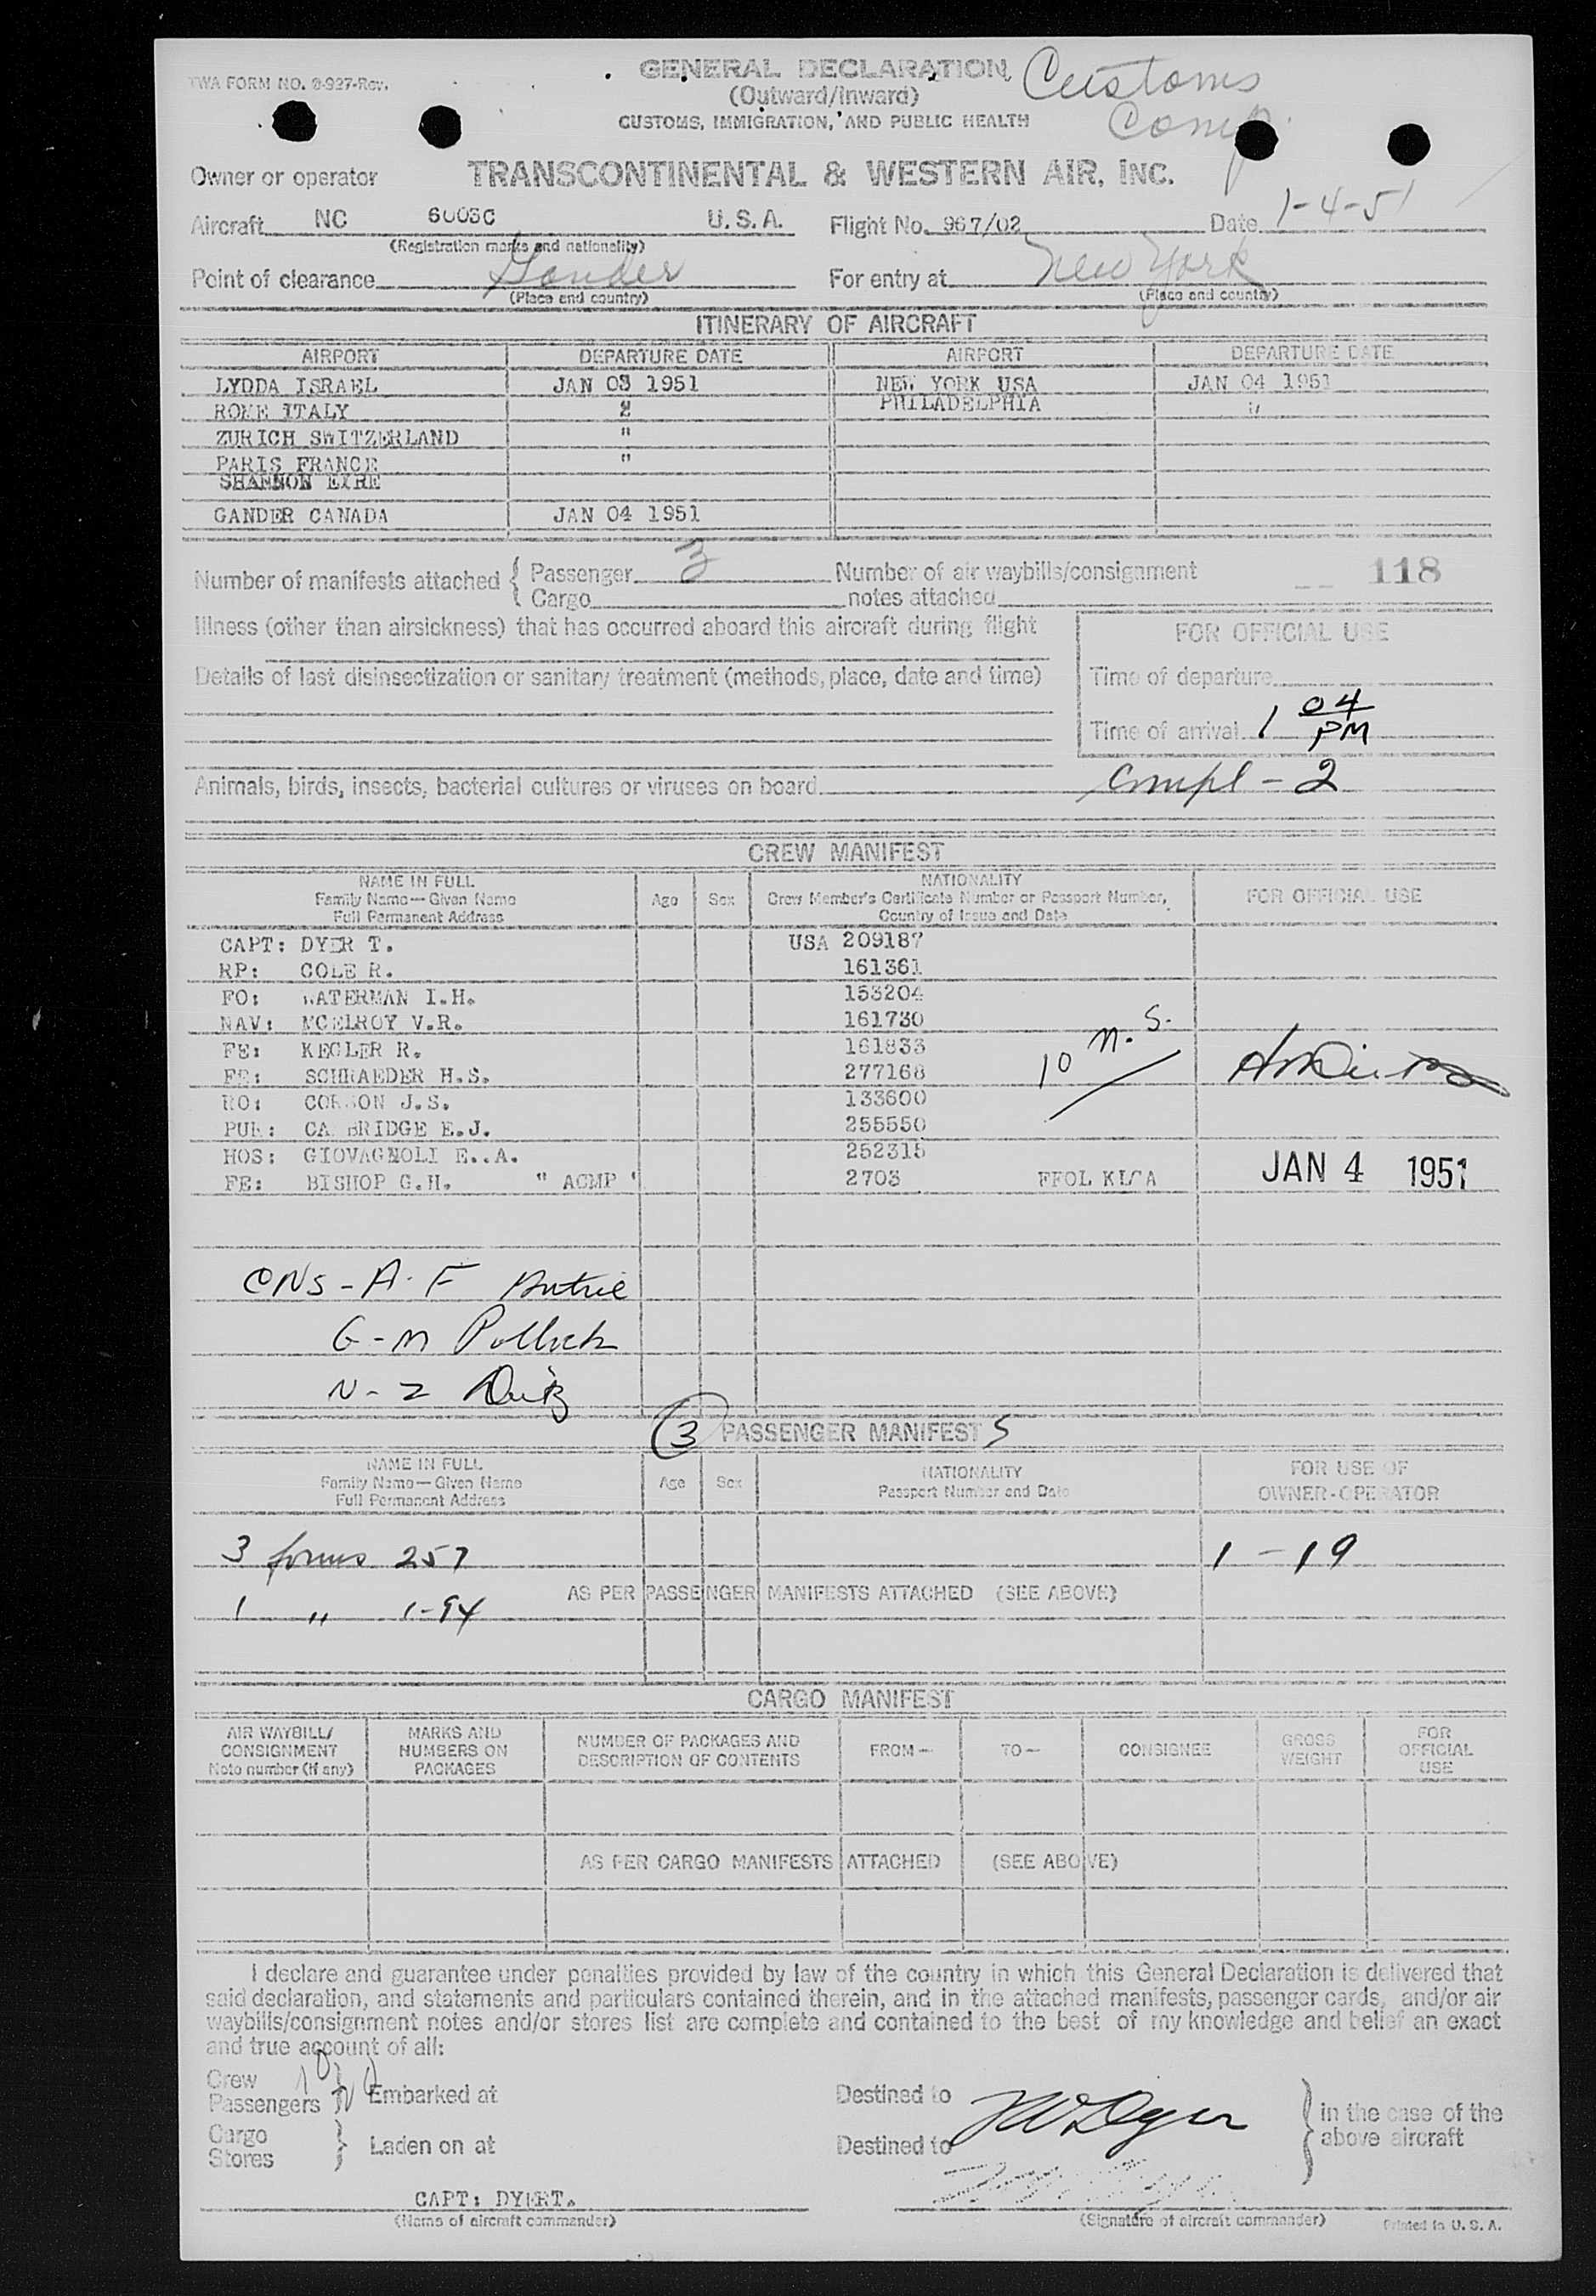 TWA FORM NO. 2-927-Rev.
GENERAL DECLARATION
Customs
(Outward/Inward)
Comp.
CUSTOMS, IMMIGRATION, AND PUBLIC HEALTH
Owner or operator TRANSCONTINENTAL & WESTERN AIR, INC.
Aircraft NC 6003C U.S.A. Flight No. 967/02 Date 1-4-51
(Registration marks and nationality)
Point of clearance Gander For entry at New York
(Place and country) (Place and country)
ITINERARY OF AIRCRAFT
AIRPORT DEPARTURE DATE AIRPORT DEPARTURE DATE
LYDDA ISRAEL JAN 03 1951 NEW YORK USA JAN 04 1951
ROME ITALY " PHILADELPHIA "
ZURICH SWITZERLAND "
PARIS FRANCE "
SHANNON EIRE
GANDER CANADA JAN 04 1951
Number of manifests attached { Passenger 3 Number of air waybills/consignment 118
Cargo notes attached
Illness (other than airsickness) that has occurred aboard this aircraft during flight
FOR OFFICIAL USE
Details of last disinsectization or sanitary treatment (methods, place, date and time)
Time of departure
Time of arrival 1 04 PM
Animals, birds, insects, bacterial cultures or viruses on board compl - 2
CREW MANIFEST
NAME IN FULL Age Sex NATIONALITY FOR OFFICIAL USE
Family Name—Given Name Crew Member's Certificate Number or Passport Number,
Full Permanent Address Country of Issue and Date
CAPT: DYER T. USA 209187
RP: COLE R. 161361
FO: WATERMAN I.H. 153204
NAV: MCELROY V.R. 161730
FE: KEGLER R. 161833
FE: SCHRAEDER H.S. 277168
10 n.s.
RO: CORSON J.S. 133600
PUR: CAMBRIDGE E.J. 255550
HOS: GIOVAGNOLI E..A. 252315
FE: BISHOP G.H. " ACMP " 2703
JAN 4 1951
CNS - A. F
G - M Pollock
N - Z
(3) PASSENGER MANIFESTS
NAME IN FULL Age Sex NATIONALITY FOR USE OF
Family Name—Given Name Passport Number and Date OWNER-OPERATOR
Full Permanent Address
3 forms 257 1 - 19
AS PER PASSENGER MANIFESTS ATTACHED (SEE ABOVE)
1 " 1-94
CARGO MANIFEST
AIR WAYBILL/ CONSIGNMENT Note number (if any) MARKS AND NUMBERS ON PACKAGES NUMBER OF PACKAGES AND DESCRIPTION OF CONTENTS FROM— TO— CONSIGNEE GROSS WEIGHT FOR OFFICIAL USE
AS PER CARGO MANIFESTS ATTACHED (SEE ABOVE)
I declare and guarantee under penalties provided by law of the country in which this General Declaration is delivered that
said declaration, and statements and particulars contained therein, and in the attached manifests, passenger cards, and/or air
waybills/consignment notes and/or stores list are complete and contained to the best of my knowledge and belief an exact
and true account of all:
Crew 10
Passengers } Embarked at Destined to } in the case of the
Cargo above aircraft
Stores } Laden on at Destined to
CAPT: DYERT.
(Name of aircraft commander) (Signature of aircraft commander) Printed in U. S. A.